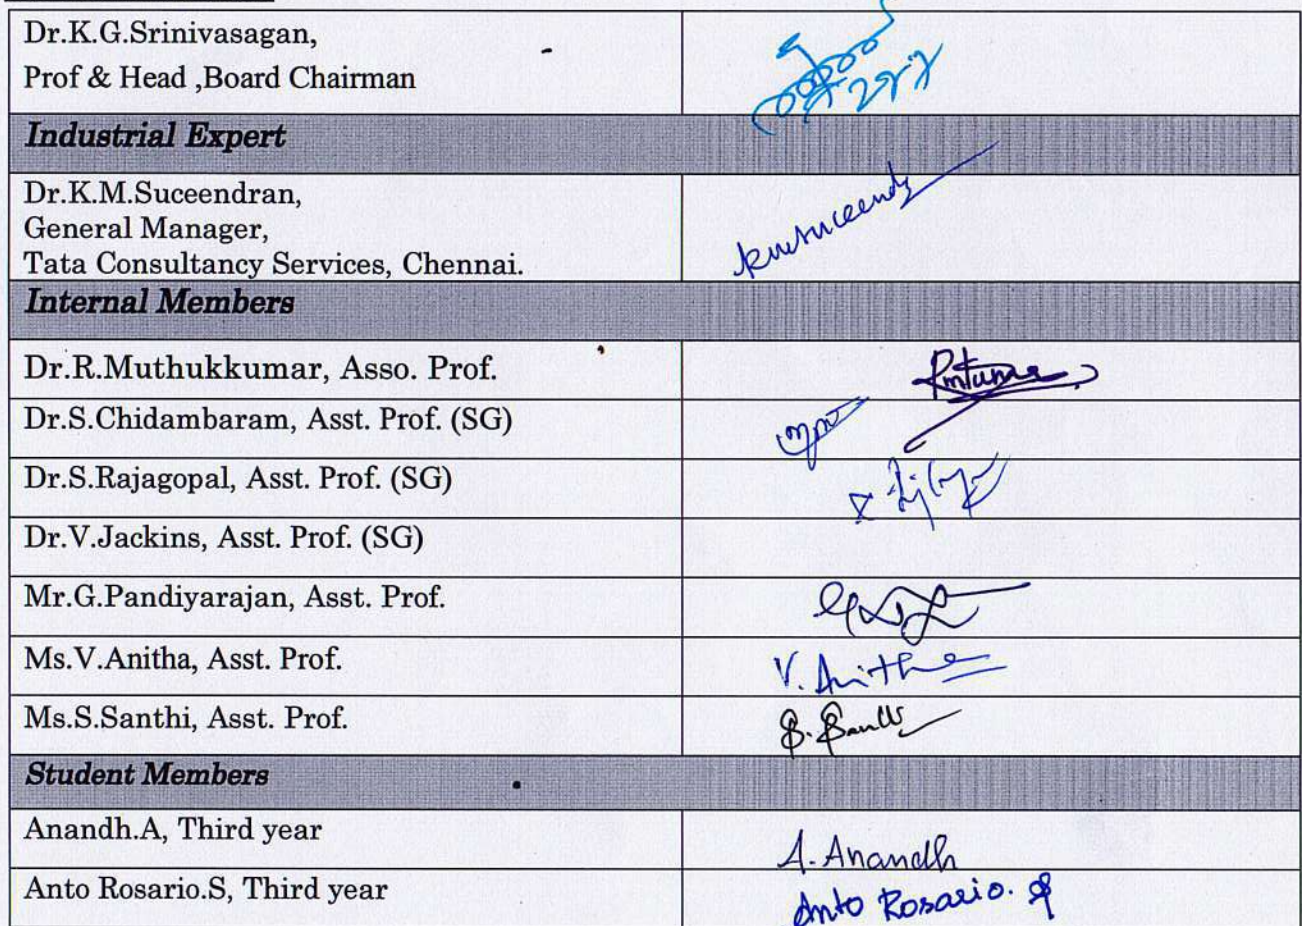 Dr.K.G.Srinivasagan,
Prof & Head ,Board Chairman
Industrial Expert
Dr.K.M.Suceendran,
General Manager,
Tata Consultancy Services, Chennai.
Internal Members
Dr.R.Muthukkumar, Asso. Prof.
Dr.S.Chidambaram, Asst. Prof. (SG)
Dr.S.Rajagopal, Asst. Prof. (SG)
Dr.V.Jackins, Asst. Prof. (SG)
Mr.G.Pandiyarajan, Asst. Prof.
Ms.V.Anitha, Asst. Prof.
V. Anitha
Ms.S.Santhi, Asst. Prof.
Student Members
Anandh.A, Third year
A. Anandh
Anto Rosario.S, Third year
Anto Rosario. S